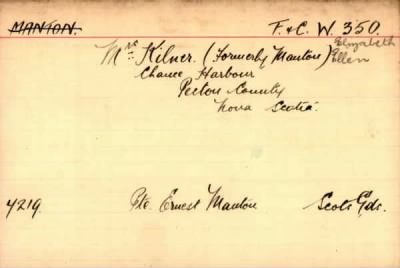 MANTON. F.&C. W. 350.
Mrs. Kilner. (Formerly Manton) Elizabeth Ellen
Chance Harbour
Pictou County
Nova Scotia.
4219. Pte. Ernest Manton Scots Gds.